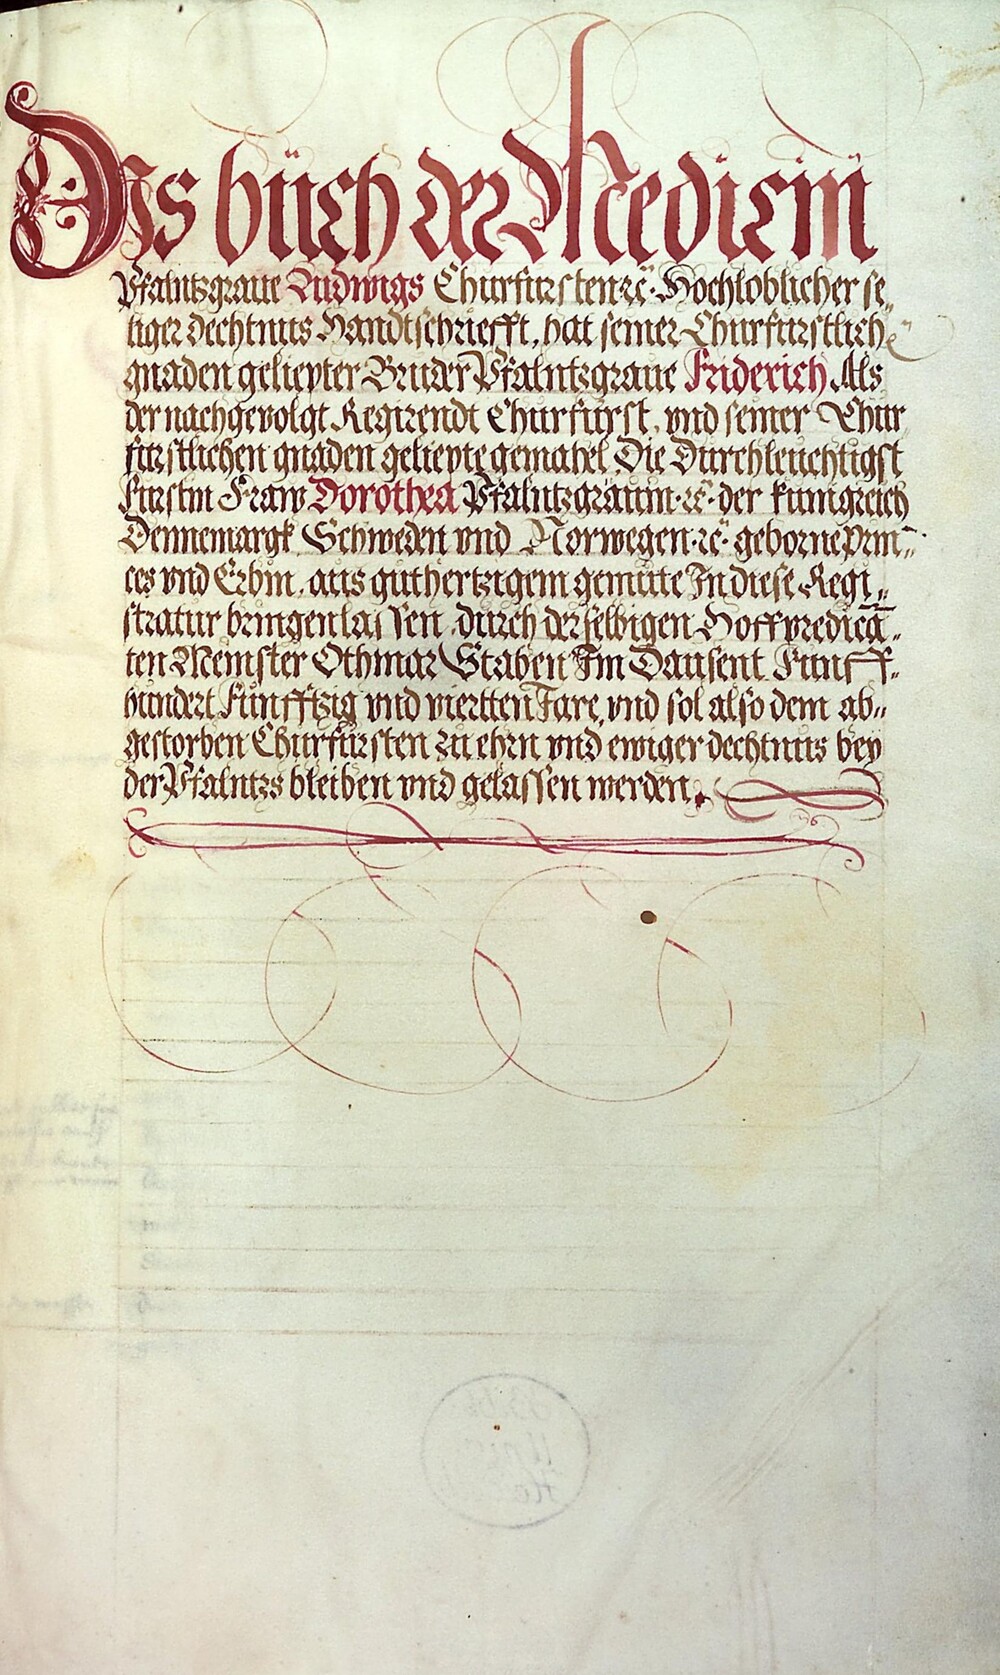 Das büch der Medicin
Pfalntzgraue Ludwigs Churfursten ꝛc̃. Hochloblicher se„
liger dechtnus Handtschriefft, hat seiner Churfurstlich„
gnaden geliepter Bruder Pfalntzgraue Friderich Als
der nachgevolgt Regirendt Churfürst, vnd seiner Chur
fürstlichen gnaden geliepte gemahel Die Durchleuchtigst
Furstin Fraw Dorothea Pfalntzgräuin ꝛc̃. der kunigreich
Dennemargk Schweden vnd Norwegen ꝛc̃. geborne prin„
ces vnd Erbin, aus guthertzigem gemüte In diese Regi„
stratur bringen lassen, durch derselbigen Hoffpredicā„
ten Meinster Othmar Staben Im Dausent Funff„
hundert Funfftzig vnd viertten Jare, vnd sol also dem ab„
gestorben Churfürsten zu ehrn vnd ewiger dechtnus bey
der Pfalntzs bleiben vnd gelassen werden.